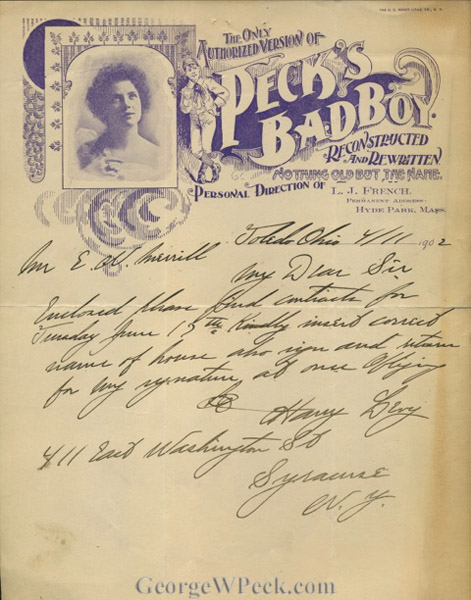 THE ONLY
AUTHORIZED VERSION OF
PECK'S
BAD BOY.
RECONSTRUCTED
AND REWRITTEN
NOTHING OLD BUT THE NAME.
PERSONAL DIRECTION OF L. J. FRENCH.
PERMANENT ADDRESS:
HYDE PARK, MASS.
Toledo Ohio 4/11 1902
Mr E. W. Merrill
My Dear Sir
Enclosed please find contracts for
Tuesday June 15th Kindly insert correct
name of house also sign and return
for my signature at once Obliging
Harry Levy
411 East Washington St
Syracuse
N.Y.
GeorgeWPeck.com